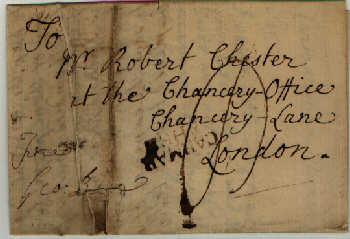 To
Mr. Robert Chester
at the Chancery-Office
Chancery-Lane
London.
Free